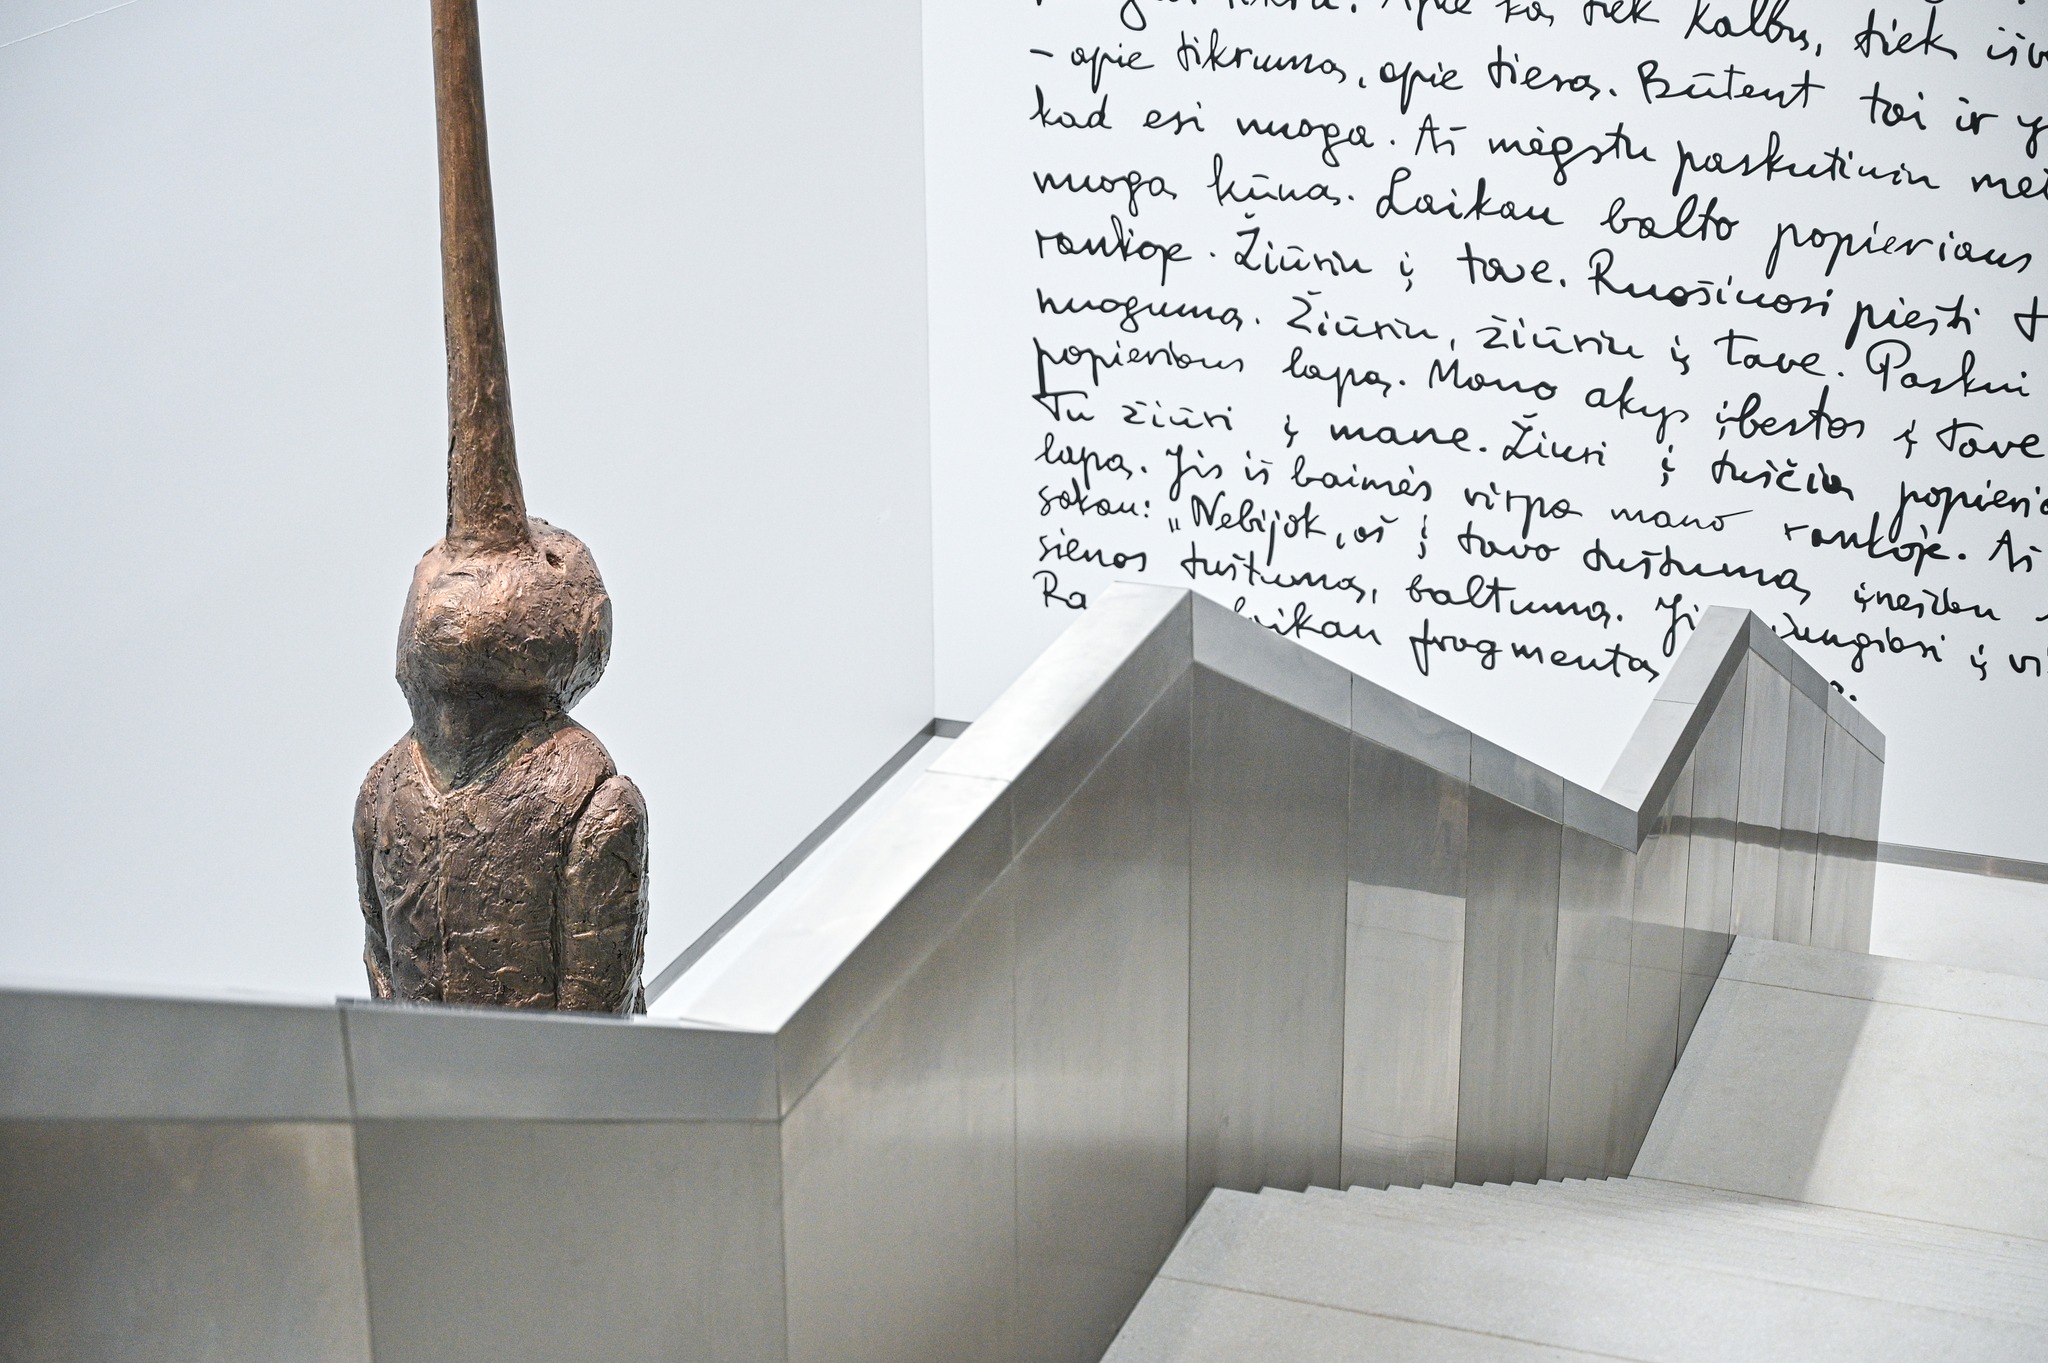 tikru. Apie ką tiek kalbu, tiek
– apie tikrumą, apie tiesą. Būtent tai ir
kad esi nuoga. Aš mėgstu paskutiniu
nuogą kūną. Laikau balto popieriaus
rankoje. Žiūriu į tave. Ruošiuosi piešti
nuogumą. Žiūriu, žiūriu į tave. Paskui
popieriaus lapą. Mano akys įbestos į tave
Tu žiūri į mane. Žiuri į tuščią
lapą. Jis iš baimės virpa mano rankoje. Aš
sakau: „Nebijok, aš į tavo tuštumą įnešiu
sienos tuštumą, baltumą. Ji į
Ra laikau fragmentas